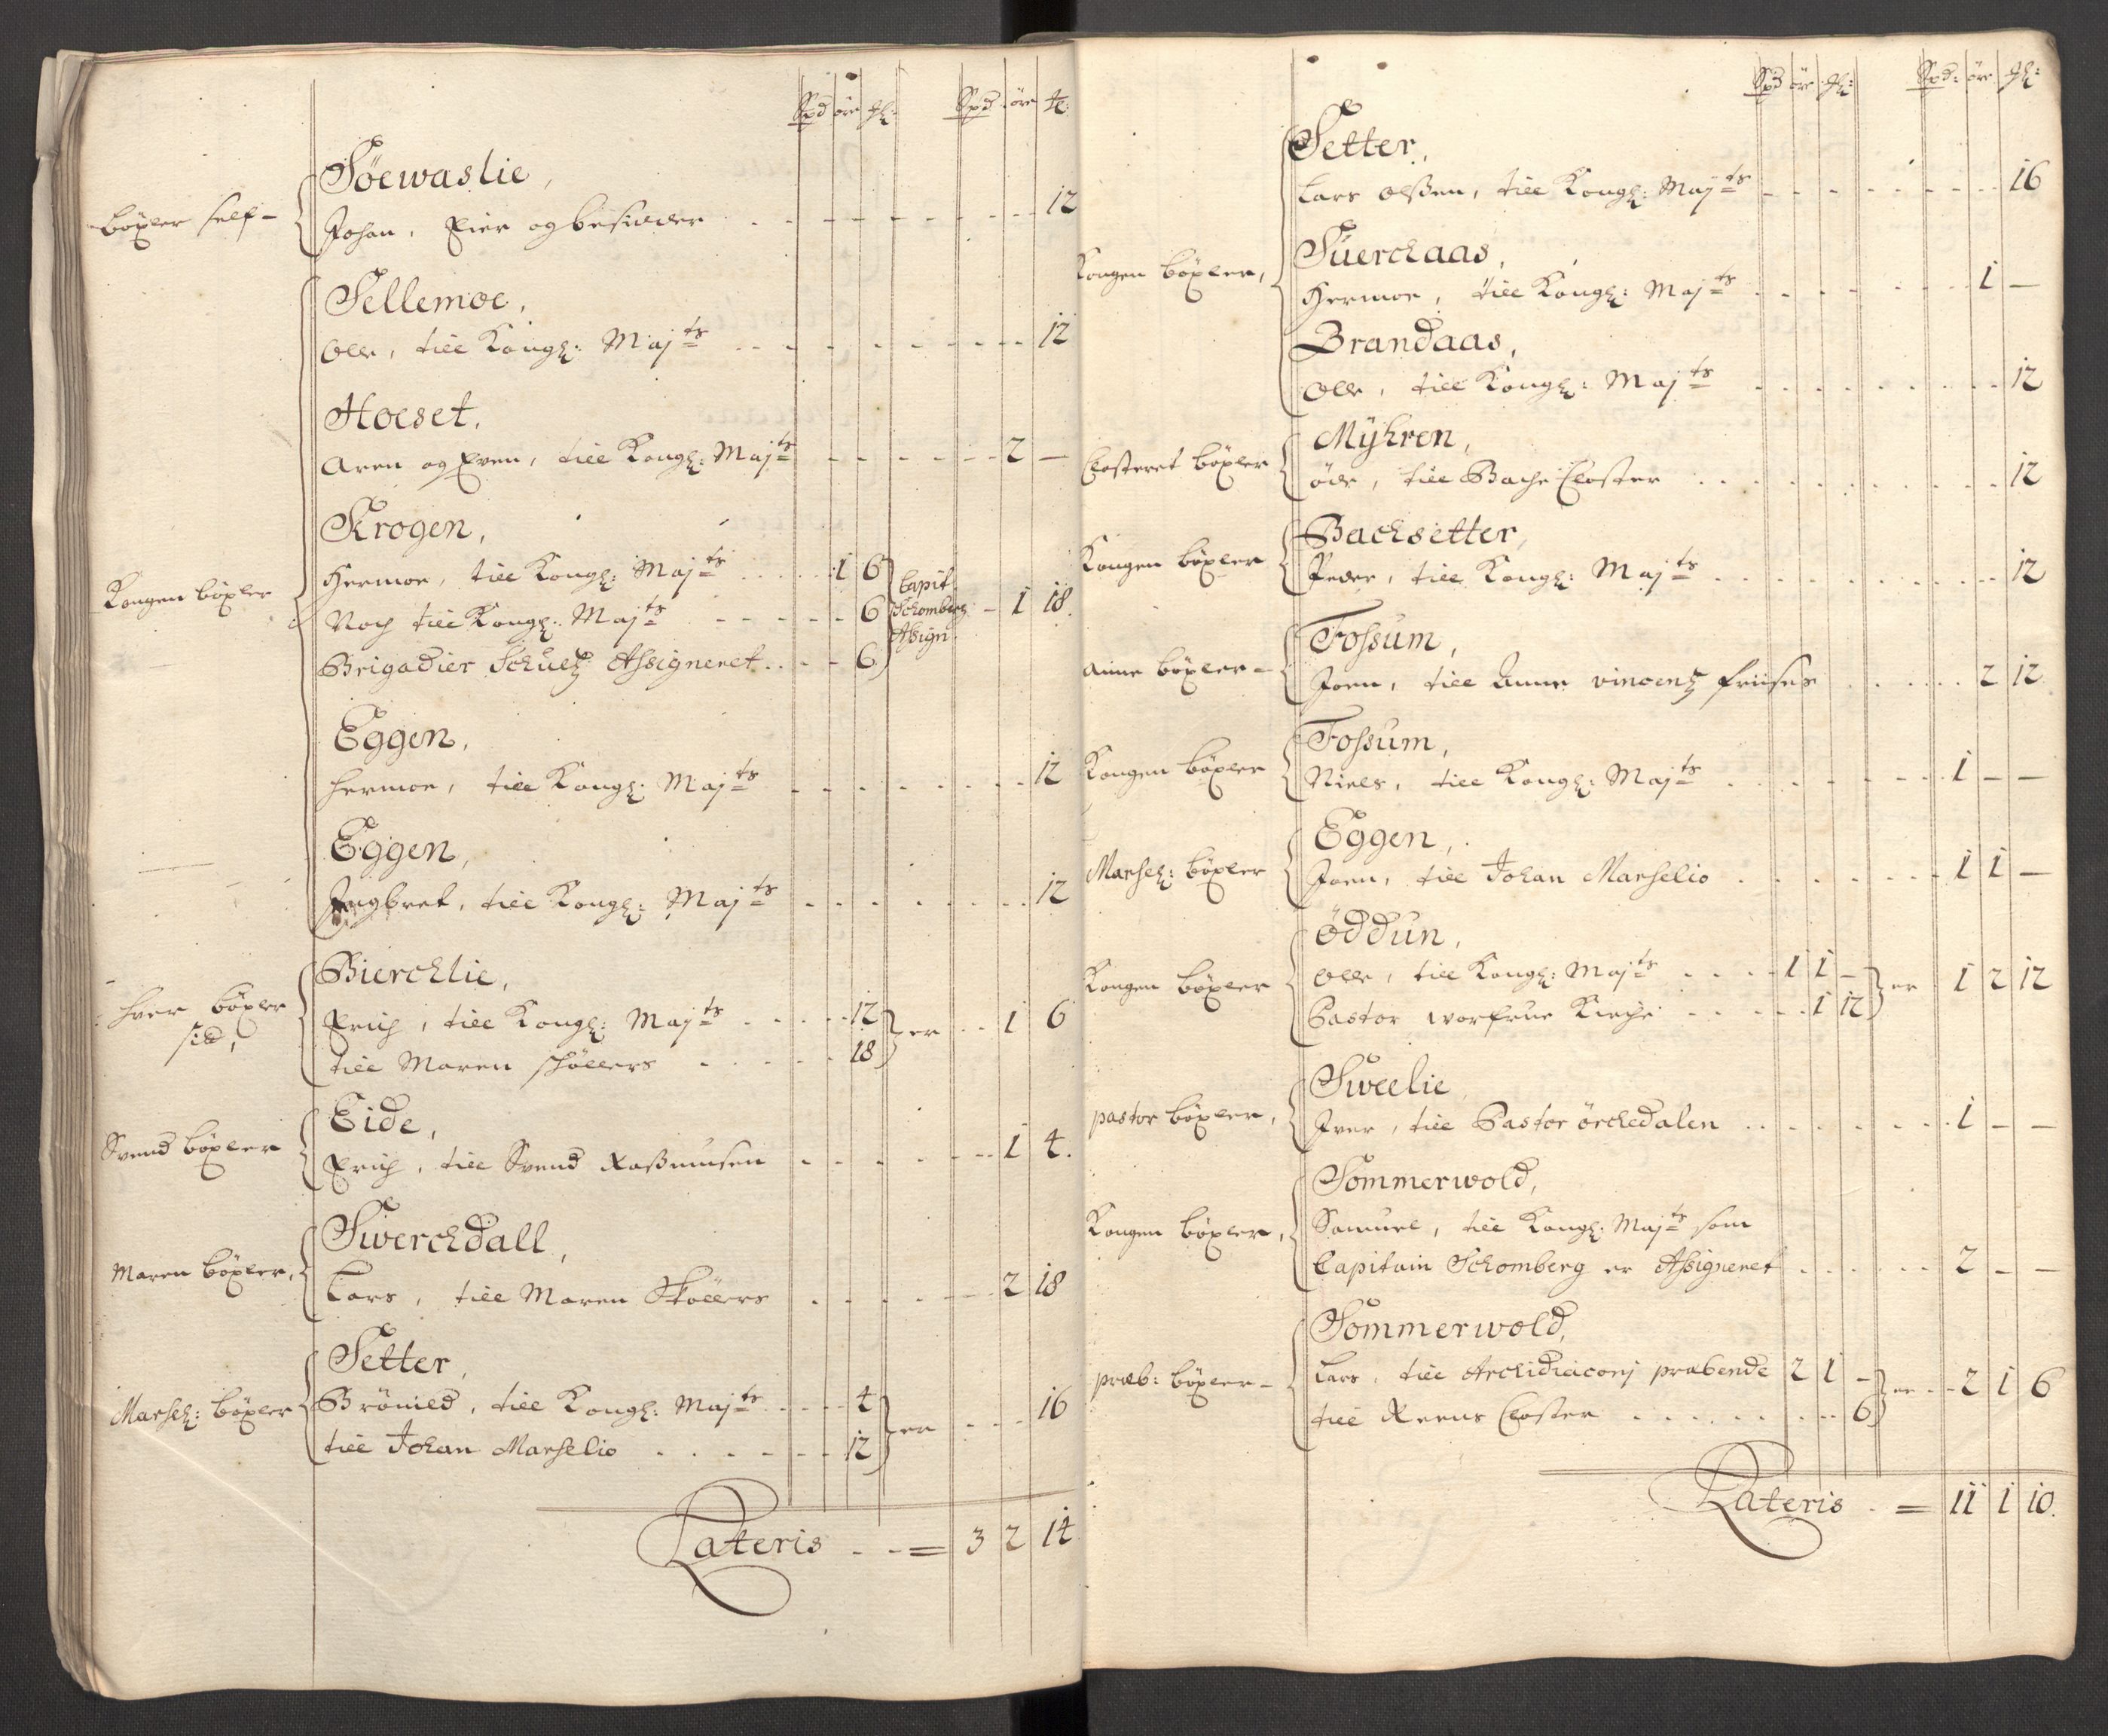 Spd øre
Spd øre
Søewaslie,
bøxler self -
Johan, Eier og besidder 12
Sellemoe,
Olle, till Kongl: Majts 12
Hoeset,
Aren og Even, till Kongl: Majts 2 -
Krogen,
Kongen bøxler
Hermoe, till Kongl: Majts 1 6
Capit
Noch till Kongl: Majts 6
Schomberg - 1 18
Assign:
Brigadier Schultz Assigneret 6
Eggen,
Hermoe, till Kongl: Majts 12
Eggen,
Ingbret, till Kongl: Majts 12
Bierchlie,
hver bøxler
sid,
Erich, till Kongl: Majts 12
er 1 6
till Maren Schøllers 18
Eide,
Svend bøxler
Erich, till Svend Rassmusen 1 4.
Swerchdall,
Maren bøxler,
Lars, till Maren Skøllers 2 18
Setter,
Marsel: bøxler
Brönild, till Kongl: Majts 4
er 16
till Johan Marselio 12
Lateris = 3 2 14
Spd øre
Spd: øre
Setter,
Lars Olssen, till Kongl: Majts 16
Suerchaas,
Kongen bøxler,
Hermoe, till Kongl: Majts 1 -
Brandaas,
Olle, till Kongl: Majts 12
Myhren,
Closteret bøxler
øde, till Bache Closter 12
Bachsetter,
Kongen bøxler
Peder, till Kongl: Majts 12
Fossum,
Anne bøxler -
Joen, till Anne Vincentz Friises 2 12
Fossum,
Kongen bøxler
Niels, till Kongl: Majts 1 - -
Eggen,
Marsel: bøxler
Joen, till Johan Marselio 1 1 -
Øddun,
Kongen bøxler
Olle, till Kongl: Majts 1 1 -
er 1 2 12
Pastor worfrue Kirche 1 12
Sweelie,
pastor bøxler,
Iver, till Pastor örchedalen 1 - -
Sommerwold,
Kongen bøxler,
Samuel, till Kongl: Majts som
Capitain Schomberg er Assigneret 2 - -
Sommerwold,
præb: bøxler -
Lars, till Archidiaconj præbende 2 1 -
er 2 1 6
till Reens Closter 6
Lateris = 11 1 10.